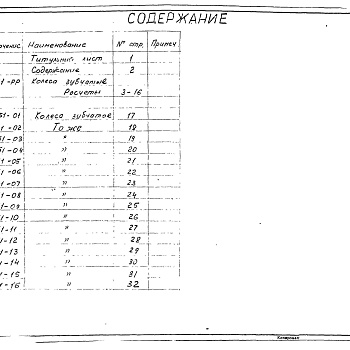 СОДЕРЖАНИЕ
Наименование № стр. Примеч
Титульный лист 1
Содержание 2
1-РР Колеса зубчатые
Расчеты 3-16
51-01 Колеса зубчатое 17
1-02 То же 18
51-03 " 19
51-04 " 20
51-05 " 21
1-06 " 22
1-07 " 23
1-08 " 24
1-09 " 25
1-10 " 26
1-11 " 27
1-12 " 28
1-13 " 29
1-14 " 30
1-15 " 31
1-16 " 32
Копировал